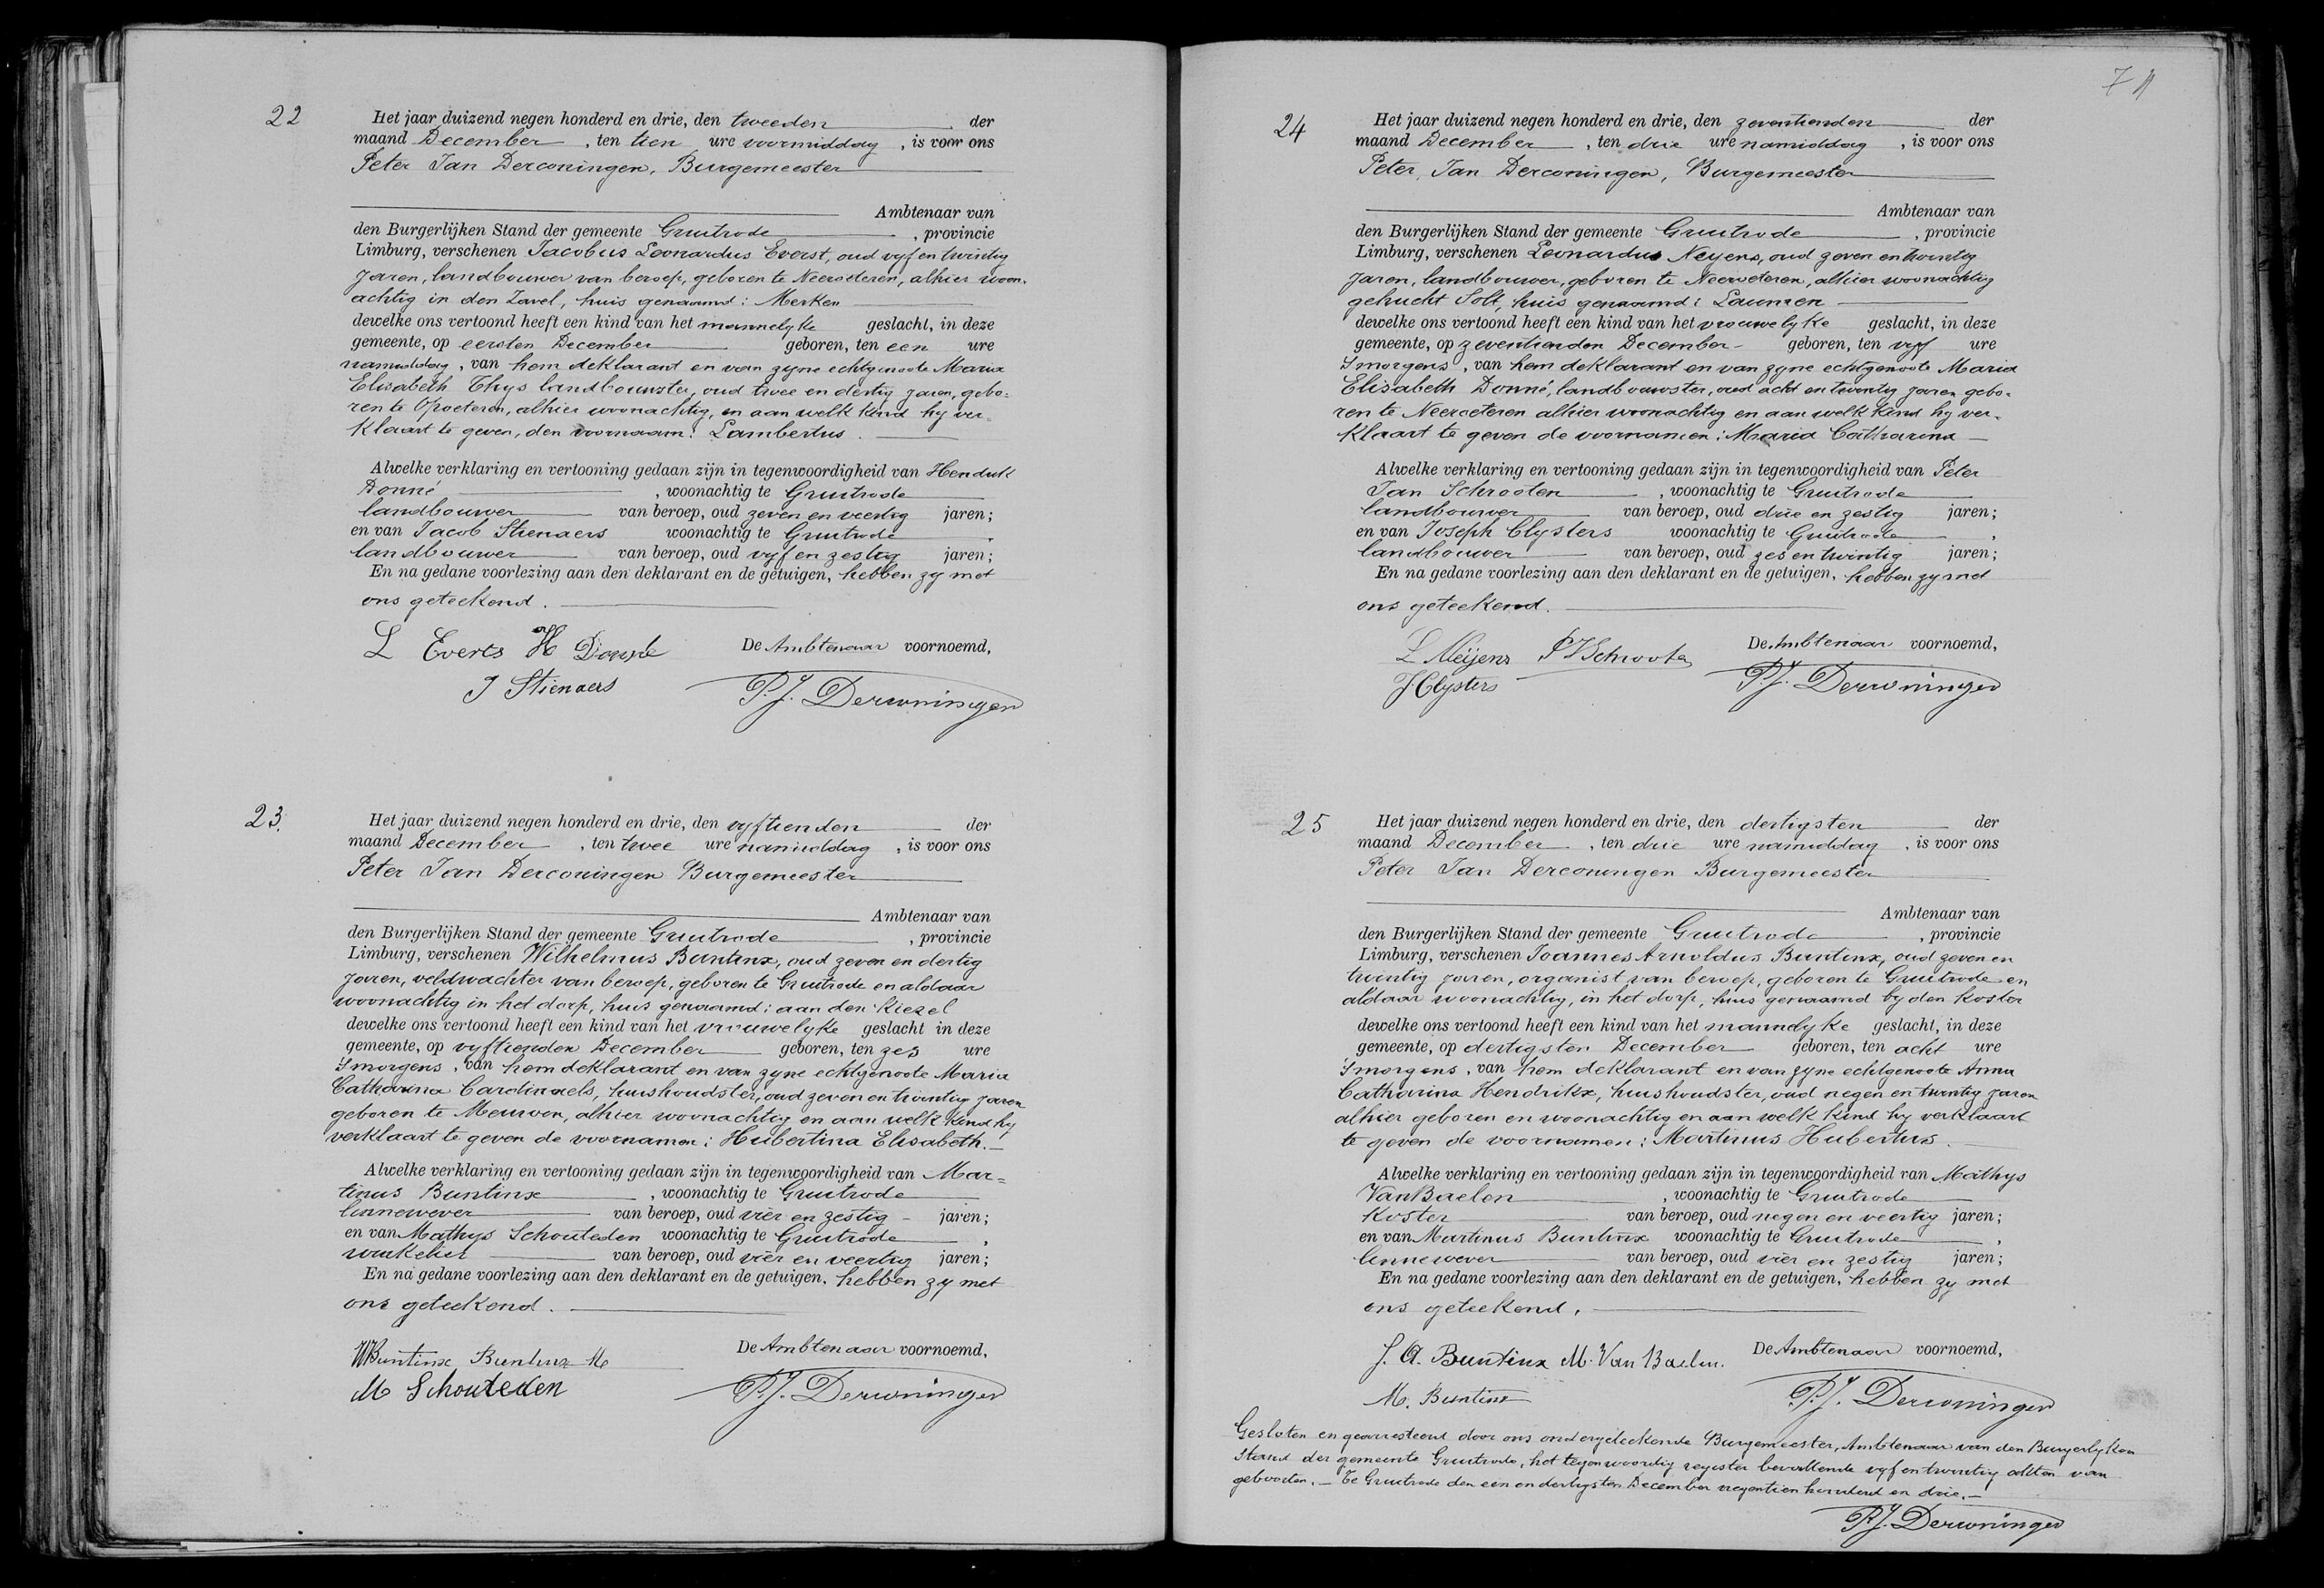 22
Het jaar duizend negen honderd en drie, den tweeden der
maand December , ten tien ure voormiddag , is voor ons
Peter Jan Derconingen, Burgemeester
Ambtenaar van
den Burgerlijken Stand der gemeente Gruitrode , provincie
Limburg, verschenen Jacobus Leonardus Everst, oud vyf en twintig
jaren, landbouwer van beroep, geboren te Neeroeteren, alhier woon-
achtig in den Zavel, huis genaamd: Merken
dewelke ons vertoond heeft een kind van het mannelyke geslacht, in deze
gemeente, op eersten December geboren, ten een ure
namiddag, van hem deklarant en van zyne echtgenoote Maria
Elisabeth Thys landbouwster, oud twee en dertig jaren, gebo-
ren te Opoeteren, alhier woonachtig, en aan welk kind hy ver-
klaart te geven, den voornaam: Lambertus.
Alwelke verklaring en vertooning gedaan zijn in tegenwoordigheid van Hendrik
Donné , woonachtig te Gruitrode
landbouwer van beroep, oud zeven en veertig jaren;
en van Jacob Stienaers woonachtig te Gruitrode ,
landbouwer van beroep, oud vyf en zestig jaren;
En na gedane voorlezing aan den deklarant en de getuigen, hebben zy met
ons geteekend.
L Everts H Donné De Ambtenaar voornoemd,
J Stienaers P.J. Derconingen
23.
Het jaar duizend negen honderd en drie, den vyftienden der
maand December , ten twee ure namiddag , is voor ons
Peter Jan Derconingen Burgemeester
Ambtenaar van
den Burgerlijken Stand der gemeente Gruitrode , provincie
Limburg, verschenen Wilhelmus Buntinx, oud zeven en dertig
jaren, veldwachter van beroep, geboren te Gruitrode en aldaar
woonachtig in het dorp, huis genaamd: aan den Kiezel
dewelke ons vertoond heeft een kind van het vrouwelyke geslacht in deze
gemeente, op vyftienden December geboren, ten zes ure
'smorgens, van hem deklarant en van zyne echtgenoote Maria
Catharina Cardinaels, huishoudster, oud zeven en twintig jaren
geboren te Meeuwen, alhier woonachtig en aan welk kind hy
verklaart te geven de voornamen: Hubertina Elisabeth.
Alwelke verklaring en vertooning gedaan zijn in tegenwoordigheid van Mar-
tinus Buntinx , woonachtig te Gruitrode
linnewever van beroep, oud vier en zestig jaren;
en van Mathys Schouteden woonachtig te Gruitrode ,
winkelier van beroep, oud vier en veertig jaren;
En na gedane voorlezing aan den deklarant en de getuigen, hebben zy met
ons geteekend.
WBuntinx Buntinx M De Ambtenaar voornoemd,
M Schouteden P.J. Derconingen
24
Het jaar duizend negen honderd en drie, den zeventienden der
maand December , ten drie ure namiddag , is voor ons
Peter Jan Derconingen, Burgemeester
Ambtenaar van
den Burgerlijken Stand der gemeente Gruitrode , provincie
Limburg, verschenen Leonardus Neyens, oud zeven en twintig
jaren, landbouwer, geboren te Neeroeteren, alhier woonachtig
gehucht Solt, huis genaamd: Launen
dewelke ons vertoond heeft een kind van het vrouwelyke geslacht, in deze
gemeente, op zeventienden December geboren, ten vyf ure
'smorgens, van hem deklarant en van zyne echtgenoote Maria
Elisabeth Donné, landbouwster, oud acht en twintig jaren gebo-
ren te Neeroeteren alhier woonachtig en aan welk kind hy ver-
klaart te geven de voornamen: Maria Catharina
Alwelke verklaring en vertooning gedaan zijn in tegenwoordigheid van Peter
Jan Schrooten , woonachtig te Gruitrode
landbouwer van beroep, oud drie en zestig jaren;
en van Joseph Clysters woonachtig te Gruitrode ,
landbouwer van beroep, oud zes en twintig jaren;
En na gedane voorlezing aan den deklarant en de getuigen, hebben zy met
ons geteekend.
L Neijens PJSchrooten De Ambtenaar voornoemd,
J.Clysters P.J. Derconingen
25
Het jaar duizend negen honderd en drie, den dertigsten der
maand December , ten drie ure namiddag , is voor ons
Peter Jan Derconingen Burgemeester
Ambtenaar van
den Burgerlijken Stand der gemeente Gruitrode , provincie
Limburg, verschenen Joannes Arnoldus Buntinx, oud zeven en
twintig jaren, organist van beroep, geboren te Gruitrode en
aldaar woonachtig, in het dorp, huis genaamd by den Koster
dewelke ons vertoond heeft een kind van het mannelyke geslacht, in deze
gemeente, op dertigsten December geboren, ten acht ure
'smorgens, van hem deklarant en van zyne echtgenoote Anna
Catharina Hendrikx, huishoudster, oud negen en twintig jaren
alhier geboren en woonachtig en aan welk kind hy verklaart
te geven de voornamen: Martinus Hubertus.
Alwelke verklaring en vertooning gedaan zijn in tegenwoordigheid van Mathys
VanBaelen , woonachtig te Gruitrode
Koster van beroep, oud negen en veertig jaren;
en van Martinus Buntinx woonachtig te Gruitrode ,
linnewever van beroep, oud vier en zestig jaren;
En na gedane voorlezing aan den deklarant en de getuigen, hebben zy met
ons geteekend.
J. A. Buntinx M. Van Baelen. De Ambtenaar voornoemd,
M. Buntinx P.J. Derconingen
Gesloten en gearresteerd door ons ondergeteekende Burgemeester, Ambtenaar van den Burgerlyken
Stand der gemeente Gruitrode, het tegenwoordig register bevattende vyf en twintig akten van
geboorten. — Te Gruitrode den een en dertigsten December negentien honderd en drie. —
P.J. Derconingen